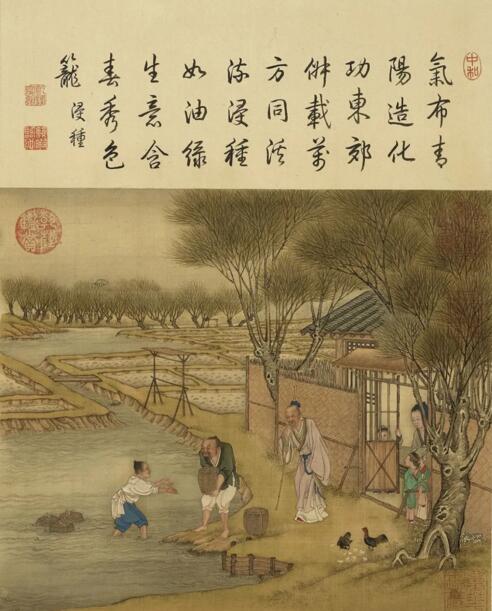 中和
氣布青
陽造化
功東郊
俶載萬
方同溪
流浸種
如油綠
生意含
春秀色
籠
浸種